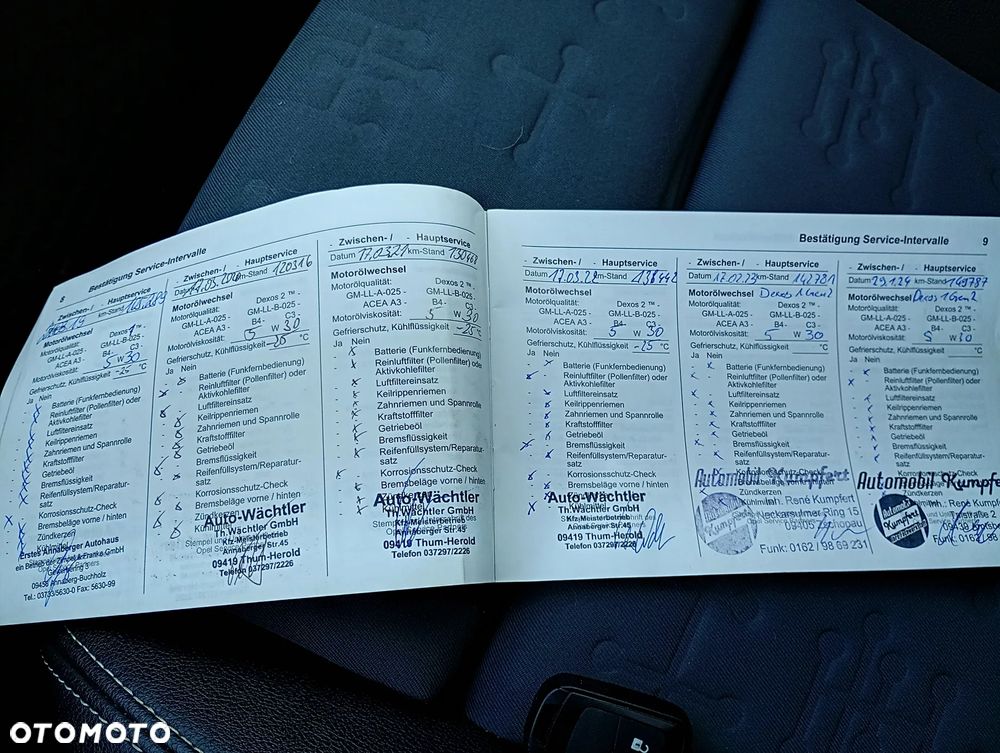 8
Bestätigung Service-Intervalle
Zwischen-/ - Hauptservice
km-Stand
Motorölwechsel
Dexos 1 ™ -
Motorölqualität:
GM-LL-A-025 - GM-LL-B-025 -
ACEA A3 - B4- C3 -
Motorölviskosität: 5 W 30
Gefrierschutz, Kühlflüssigkeit -25 °C
Ja Nein
Batterie (Funkfernbedienung)
Reinluftfilter (Pollenfilter) oder
Aktivkohlefilter
Luftfiltereinsatz
Keilrippenriemen
Zahnriemen und Spannrolle
Kraftstofffilter
Getriebeöl
Bremsflüssigkeit
Reifenfüllsystem/Reparatur-
satz
Korrosionsschutz-Check
Bremsbeläge vorne / hinten
Zündkerzen
Kühlmittel
Erstes Annaberger Autohaus
09456 Annaberg-Buchholz
Tel.: 03733/5630-0 Fax: 5630-99
Zwischen-/ - Hauptservice
Datum km-Stand 120316
Motorölwechsel
Motorölqualität: Dexos 2 ™ -
GM-LL-A-025 - GM-LL-B-025 -
ACEA A3 - B4- C3 -
Motorölviskosität: 5 W 30
Gefrierschutz, Kühlflüssigkeit °C
Ja Nein
Batterie (Funkfernbedienung)
Reinluftfilter (Pollenfilter) oder
Aktivkohlefilter
Luftfiltereinsatz
Keilrippenriemen
Zahnriemen und Spannrolle
Kraftstofffilter
Getriebeöl
Bremsflüssigkeit
Reifenfüllsystem/Reparatur-
satz
Korrosionsschutz-Check
Bremsbeläge vorne / hinten
Zündkerzen
Kühlmittel
Auto-Wächtler
Th.Wächtler GmbH
Kfz-Meisterbetrieb
Annaberger Str.45
09419 Thum-Herold
Telefon 037297/2226
- Zwischen-/ - Hauptservice
Datum 17.03.21 km-Stand
Motorölwechsel
Motorölqualität: Dexos 2 ™ -
GM-LL-A-025 - GM-LL-B-025 -
ACEA A3 - B4- C3 -
Motorölviskosität: 5 W 30
Gefrierschutz, Kühlflüssigkeit -25 °C
Ja Nein
Batterie (Funkfernbedienung)
Reinluftfilter (Pollenfilter) oder
Aktivkohlefilter
Luftfiltereinsatz
Keilrippenriemen
Zahnriemen und Spannrolle
Kraftstofffilter
Getriebeöl
Bremsflüssigkeit
Reifenfüllsystem/Reparatur-
satz
Korrosionsschutz-Check
Bremsbeläge vorne / hinten
Zündkerzen
Kühlmittel
Auto-Wächtler
Th.Wächtler GmbH
Kfz-Meisterbetrieb
Annaberger Str.45
09419 Thum-Herold
Telefon 037297/2226
Bestätigung Service-Intervalle 9
- Zwischen-/ - Hauptservice
Datum 17.03.22 km-Stand 136442
Motorölwechsel
Motorölqualität: Dexos 2 ™ -
GM-LL-A-025 - GM-LL-B-025 -
ACEA A3 - B4- C3 -
Motorölviskosität: 5 W 30
Gefrierschutz, Kühlflüssigkeit -25 °C
Ja Nein
Batterie (Funkfernbedienung)
Reinluftfilter (Pollenfilter) oder
Aktivkohlefilter
Luftfiltereinsatz
Keilrippenriemen
Zahnriemen und Spannrolle
Kraftstofffilter
Getriebeöl
Bremsflüssigkeit
Reifenfüllsystem/Reparatur-
satz
Korrosionsschutz-Check
Bremsbeläge vorne / hinten
Auto-Wächtler
Th.Wächtler GmbH
Kfz-Meisterbetrieb
Annaberger Str.45
09419 Thum-Herold
Telefon 037297/2226
- Zwischen-/ - Hauptservice
Datum 17.02.23 km-Stand 142781
Motorölwechsel Dexos 1 Gen2
Motorölqualität: Dexos 2 ™ -
GM-LL-A-025 - GM-LL-B-025 -
ACEA A3 - B4- C3 -
Motorölviskosität: 5 W 30
Gefrierschutz, Kühlflüssigkeit °C
Ja Nein
Batterie (Funkfernbedienung)
Reinluftfilter (Pollenfilter) oder
Aktivkohlefilter
Luftfiltereinsatz
Keilrippenriemen
Zahnriemen und Spannrolle
Kraftstofffilter
Getriebeöl
Bremsflüssigkeit
Reifenfüllsystem/Reparatur-
satz
Automobil Kumpfert
Zündkerzen
Inh. René Kumpfert
Neckarsulmer Ring 15
09405 Zschopau
Funk: 0162 / 98 69 231
- Zwischen-/ - Hauptservice
Datum 29.1.24 km-Stand 149787
Motorölwechsel Dexos 1 Gen2
Motorölqualität: Dexos 2 ™ -
GM-LL-A-025 - GM-LL-B-025 -
ACEA A3 - B4- C3 -
Motorölviskosität: 5 W 30
Gefrierschutz, Kühlflüssigkeit °C
Ja Nein
Batterie (Funkfernbedienung)
Reinluftfilter (Pollenfilter) oder
Aktivkohlefilter
Luftfiltereinsatz
Keilrippenriemen
Zahnriemen und Spannrolle
Kraftstofffilter
Getriebeöl
Bremsflüssigkeit
Reifenfüllsystem/Reparatur-
satz
Korrosionsschutz-Check
Automobil Kumpfe
Zündkerzen
Inh. René Kumpf
OTOMOTO